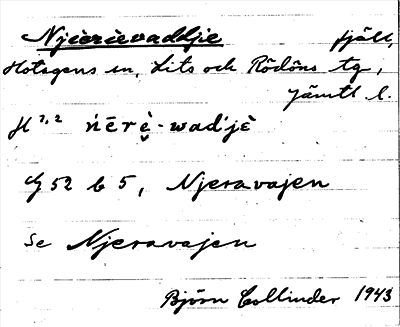 Njierievaddjie fjäll,
Hotagens sn, Lits och Rödöns tg,
Jämtl. l.
H 2,2 ńērè̬-wad'jè
G 52 b 5, Njeravajen
Se Njeravajen
Björn Collinder 1943